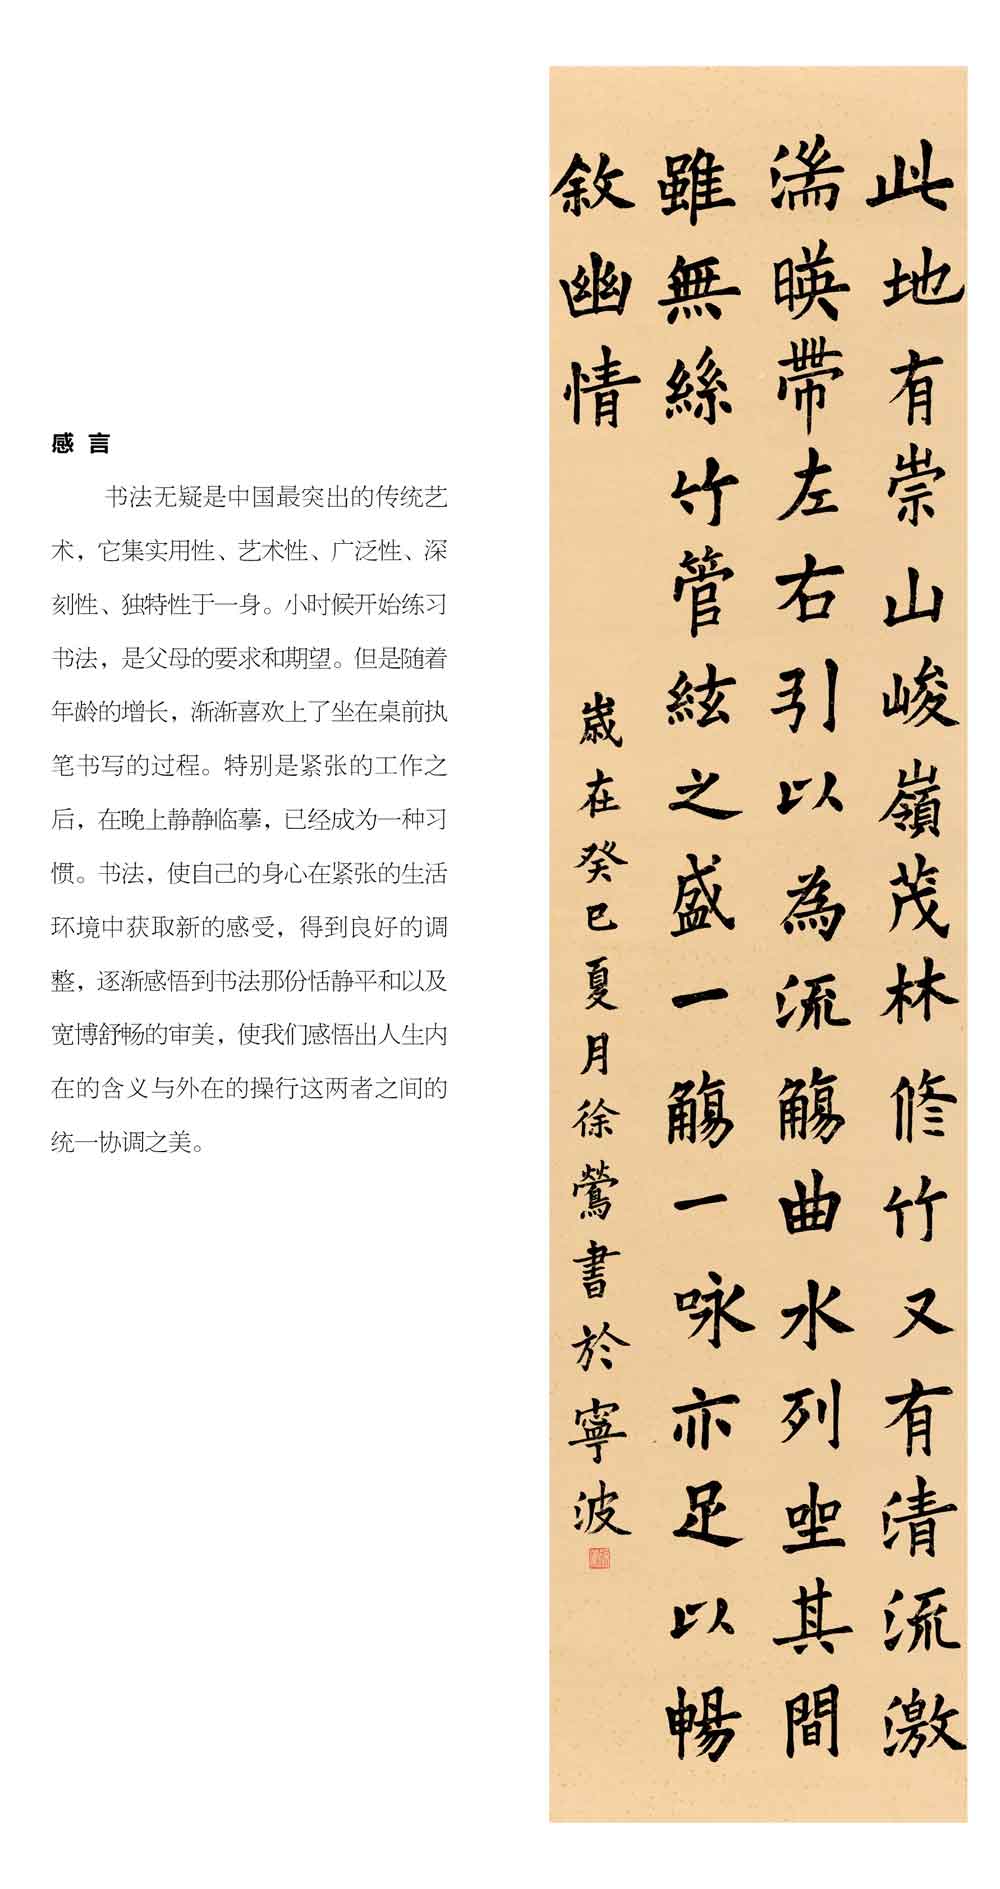 感言
书法无疑是中国最突出的传统艺
术，它集实用性、艺术性、广泛性、深
刻性、独特性于一身。小时候开始练习
书法，是父母的要求和期望。但是随着
年龄的增长，渐渐喜欢上了坐在桌前执
笔书写的过程。特别是紧张的工作之
后，在晚上静静临摹，已经成为一种习
惯。书法，使自己的身心在紧张的生活
环境中获取新的感受，得到良好的调
整，逐渐感悟到书法那份恬静平和以及
宽博舒畅的审美，使我们感悟出人生内
在的含义与外在的操行这两者之间的
统一协调之美。
此地有崇山峻嶺茂林修竹又有清流激
湍暎帶左右引以為流觴曲水列坐其間
雖無絲竹管絃之盛一觴一咏亦足以暢
敘幽情
歲在癸巳夏月徐鶯書於寧波